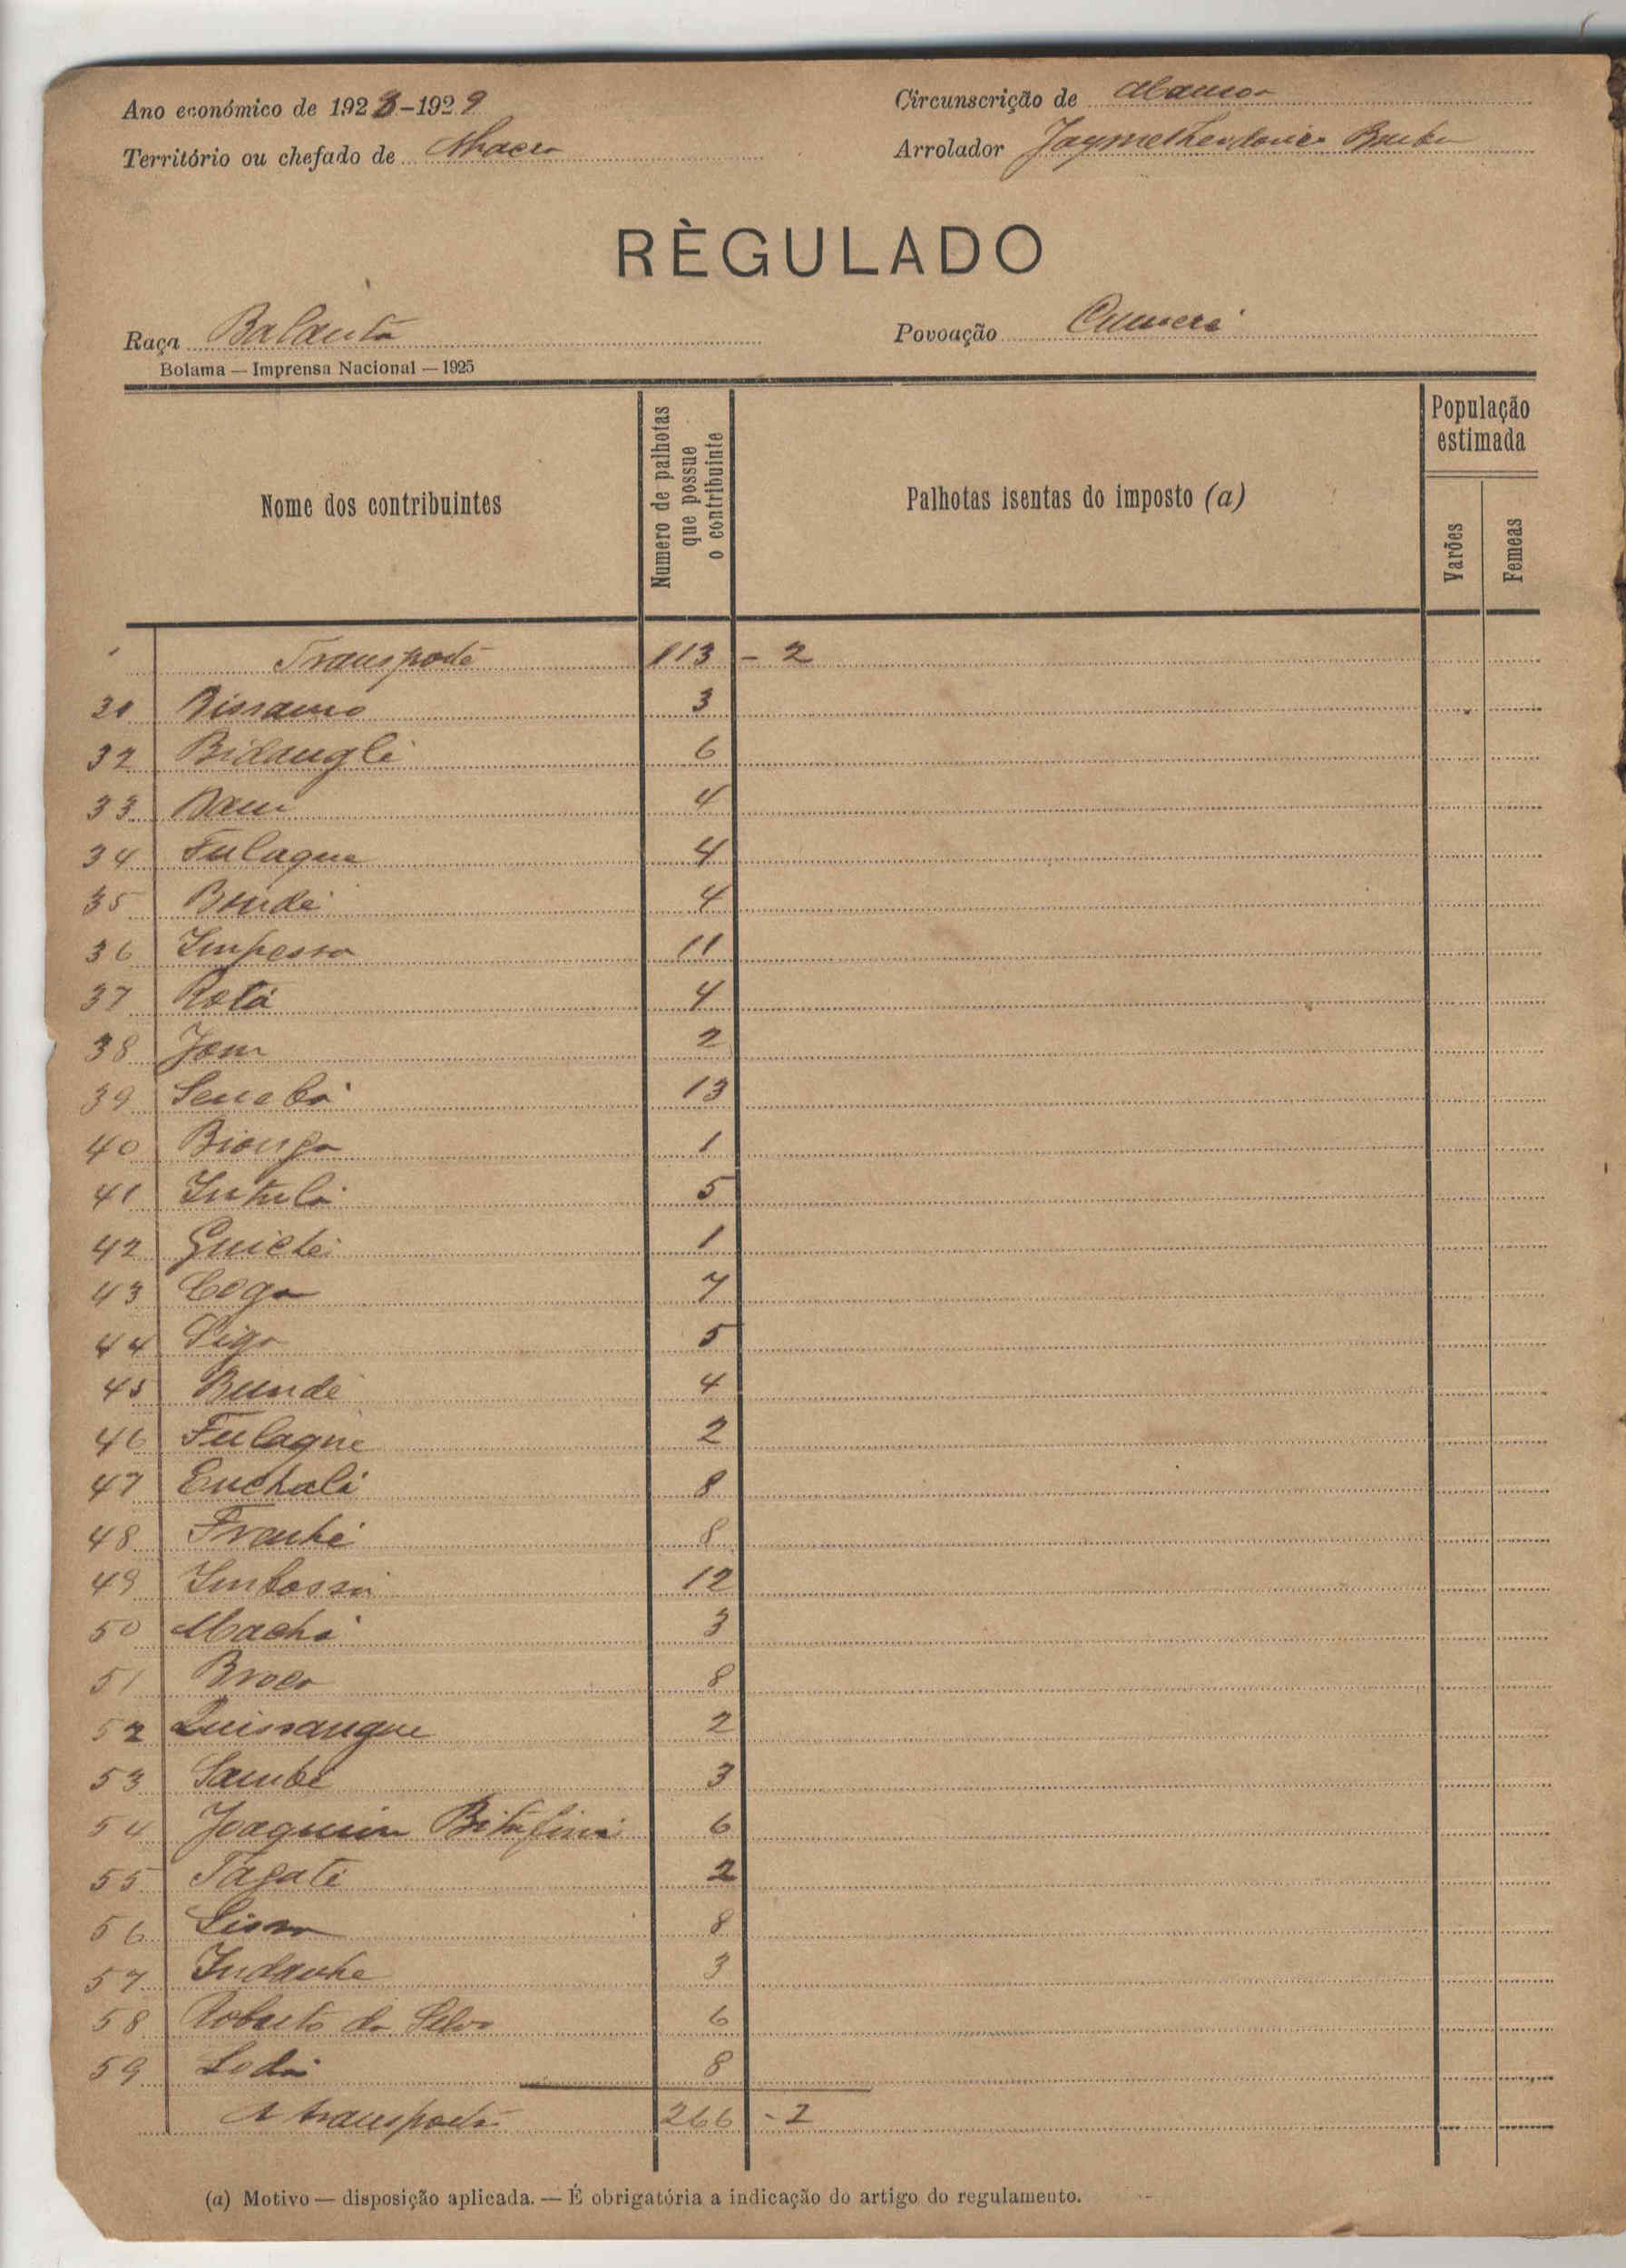 Ano económico de 1928-1929
Circunscrição de Mansôa
Território ou chefado de Nhacra
Arrolador Jayme Theodorico Barbo
RÈGULADO
Raça Balanta
Povoação Cumeré
Bolama — Imprensa Nacional — 1925
Nome dos contribuintes
Numero de palhotas que possue o contribuinte
Palhotas isentas do imposto (a)
População estimada
Varões
Femeas
Transporte 113 - 2
31 Bissanno 3
32 Bidaugle 6
33 4
34 Fulaque 4
35 Bindé 4
36 Impessa 11
37 Rotá 4
38 Jom 2
39 13
40 Bionga 1
41 Intulá 5
42 1
43 Coga 7
44 5
45 Bunde 4
46 Fulaque 2
47 Enchalé 8
48 8
49 Imbassá 12
50 Machá 3
51 Broco 8
52 Quissangue 2
53 Sambé 3
54 Joaquim 6
55 Tagate 2
56 8
57 3
58 Roberto da Silva 6
59 8
A transportar 266 - 2
(a) Motivo — disposição aplicada. — É obrigatória a indicação do artigo do regulamento.